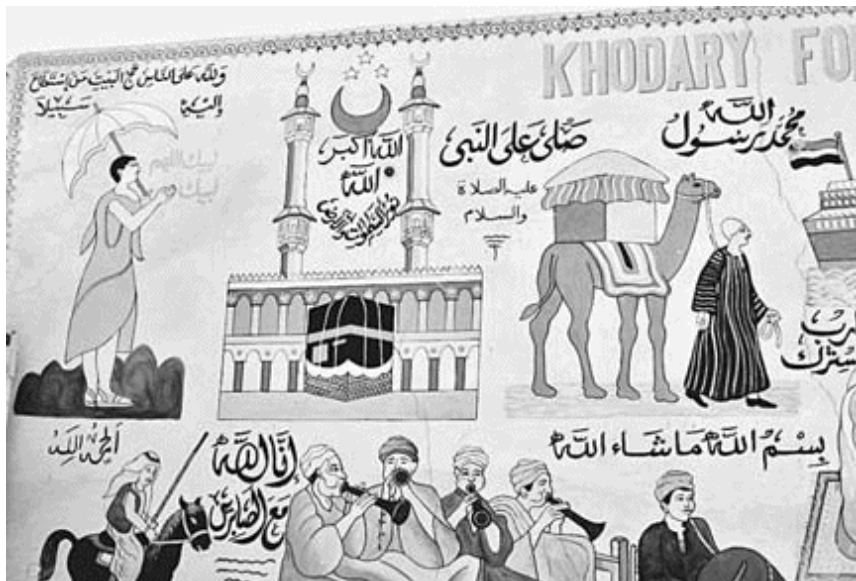 KHODARY FO
ولله على الناس حج البيت من إستطاع
إليه سبيلا
لبيك اللهم
لبيك
الله اكبر
الله
نور السموات
صلى على النبى
عليه الصلاة
والسلام
محمد رسول الله
الحمد لله
إن الله
مع الصابرين
بسم الله ماشاء الله